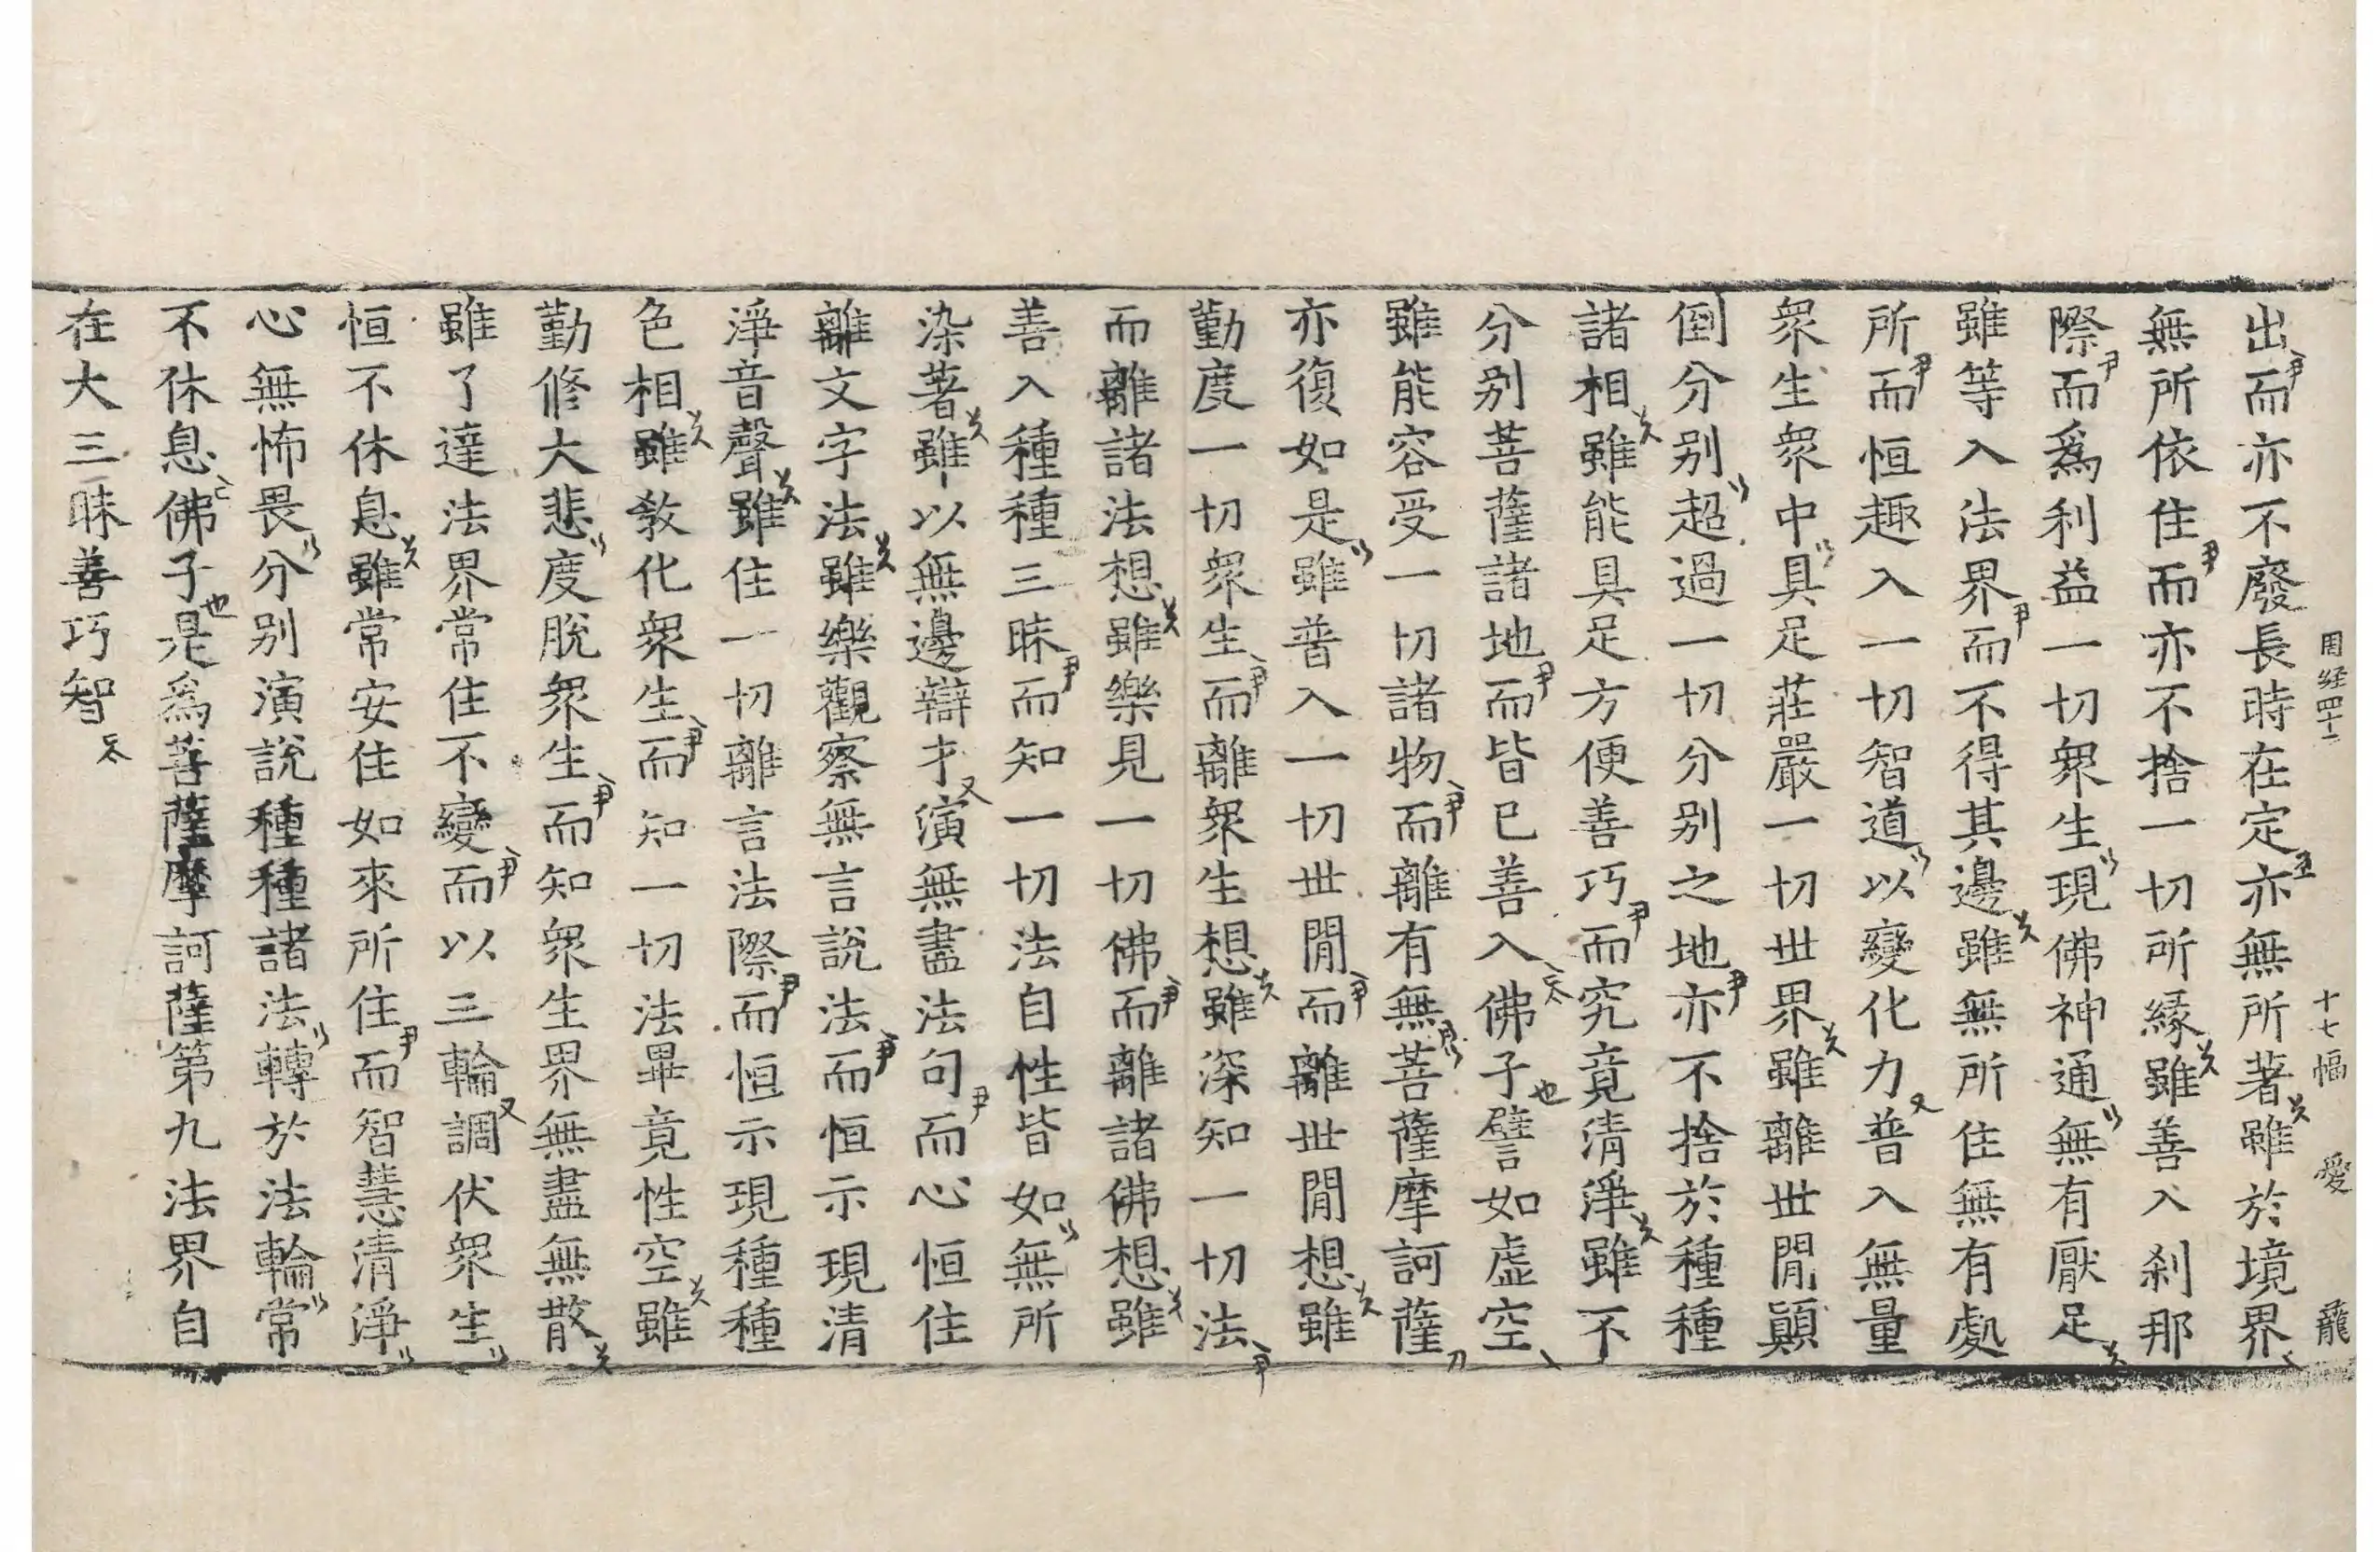 周経四十二　十七幅　愛　龍
出而亦不廢長時在定亦無所著雖於境界
無所依住而亦不捨一切所縁雖善入刹那
際而爲利益一切衆生現佛神通無有厭足
雖等入法界而不得其邊雖無所住無有處
所而恒趣入一切智道以變化力普入無量
衆生衆中具足莊嚴一切世界雖離世間顚
倒分别超過一切分别之地亦不捨於種種
諸相雖能具足方便善巧而究竟清淨雖不
分别菩薩諸地而皆已善入佛子譬如虛空
雖能容受一切諸物而離有無菩薩摩訶薩
亦復如是雖普入一切世間而離世間想雖
勤度一切衆生而離衆生想雖深知一切法
而離諸法想雖樂見一切佛而離諸佛想雖
善入種種三昧而知一切法自性皆如無所
染著雖以無邊辯才演無盡法句而心恒住
離文字法雖樂觀察無言說法而恒示現清
淨音聲雖住一切離言法際而恒示現種種
色相雖教化衆生而知一切法畢竟性空雖
勤修大悲度脫衆生而知衆生界無盡無散
雖了達法界常住不變而以三輪調伏衆生
恒不休息雖常安住如來所住而智慧清淨
心無怖畏分别演說種種諸法轉於法輪常
不休息佛子是爲菩薩摩訶薩第九法界自
在大三昧善巧智